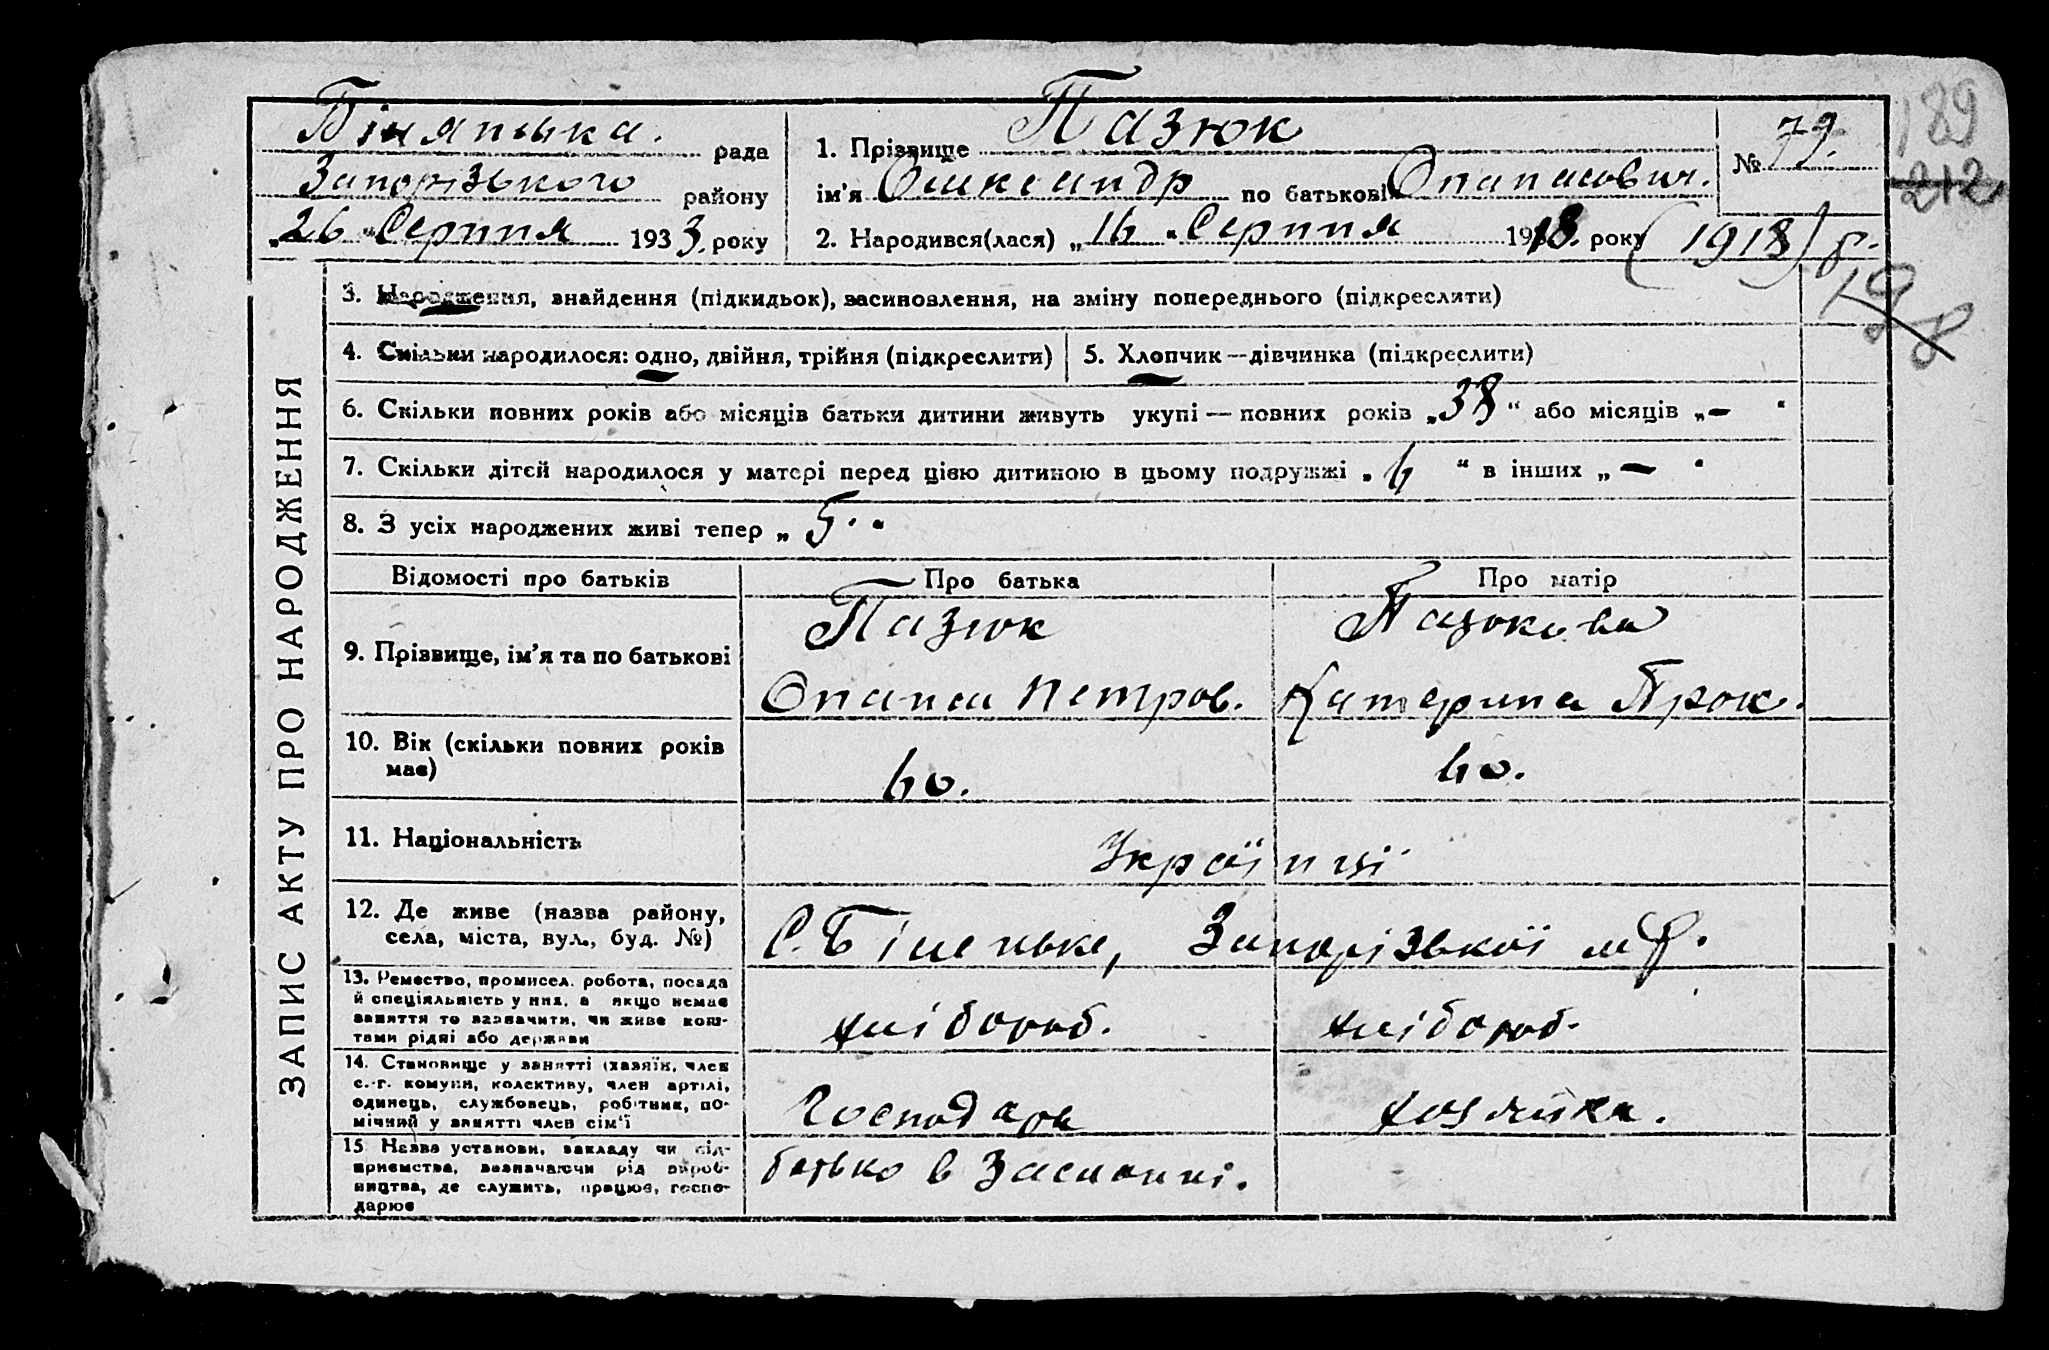 Біляпська. рада
Запорізького району
„26" Серпня 1933. року
1. Прізвище Пазюк
ім'я Олександр по батькові Опанасович.
№ 79.
189
212
2. Народився(лася) „16" Серпня 1918. року (1918) р.
19
8
ЗАПИС АКТУ ПРО НАРОДЖЕННЯ
3. Народження, знайдення (підкидьок), засиновлення, на зміну попереднього (підкреслити)
4. Скільки народилося: одно, двійня, трійня (підкреслити)
5. Хлопчик—дівчинка (підкреслити)
6. Скільки повних років або місяців батьки дитини живуть укупі — повних років „38" або місяців „—"
7. Скільки дітей народилося у матері перед цією дитиною в цьому подружжі „6" в інших „—"
8. З усіх народжених живі тепер „5."
Відомості про батьків
Про батька
Про матір
9. Прізвище, ім'я та по батькові
Пазюк
Опанас Петров.
Пазюкова
Катерина Прок.
10. Вік (скільки повних років
має)
60.
60.
11. Національність
Українці
12. Де живе (назва району,
села, міста, вул., буд. №)
С. Біленьке, Запорізької м р.
13. Ремество, промисел, робота, посада
й спеціяльність у них, а якщо немає
заняття то зазначити, чи живе кош-
тами рідні або держави
хлібороб.
хлібороб.
14. Становище у занятті (хазяїн, член
с.-г. комуни, колективу, член артілі,
одинець, службовець, робітник, по-
мічний у занятті член сім'ї
Господарь
хозяйка.
15 Назва установи, закладу чи під-
приємства, зазначаючи рід вироб-
ництва, де служить, працює, госпо-
дарює
батько в Засланні.